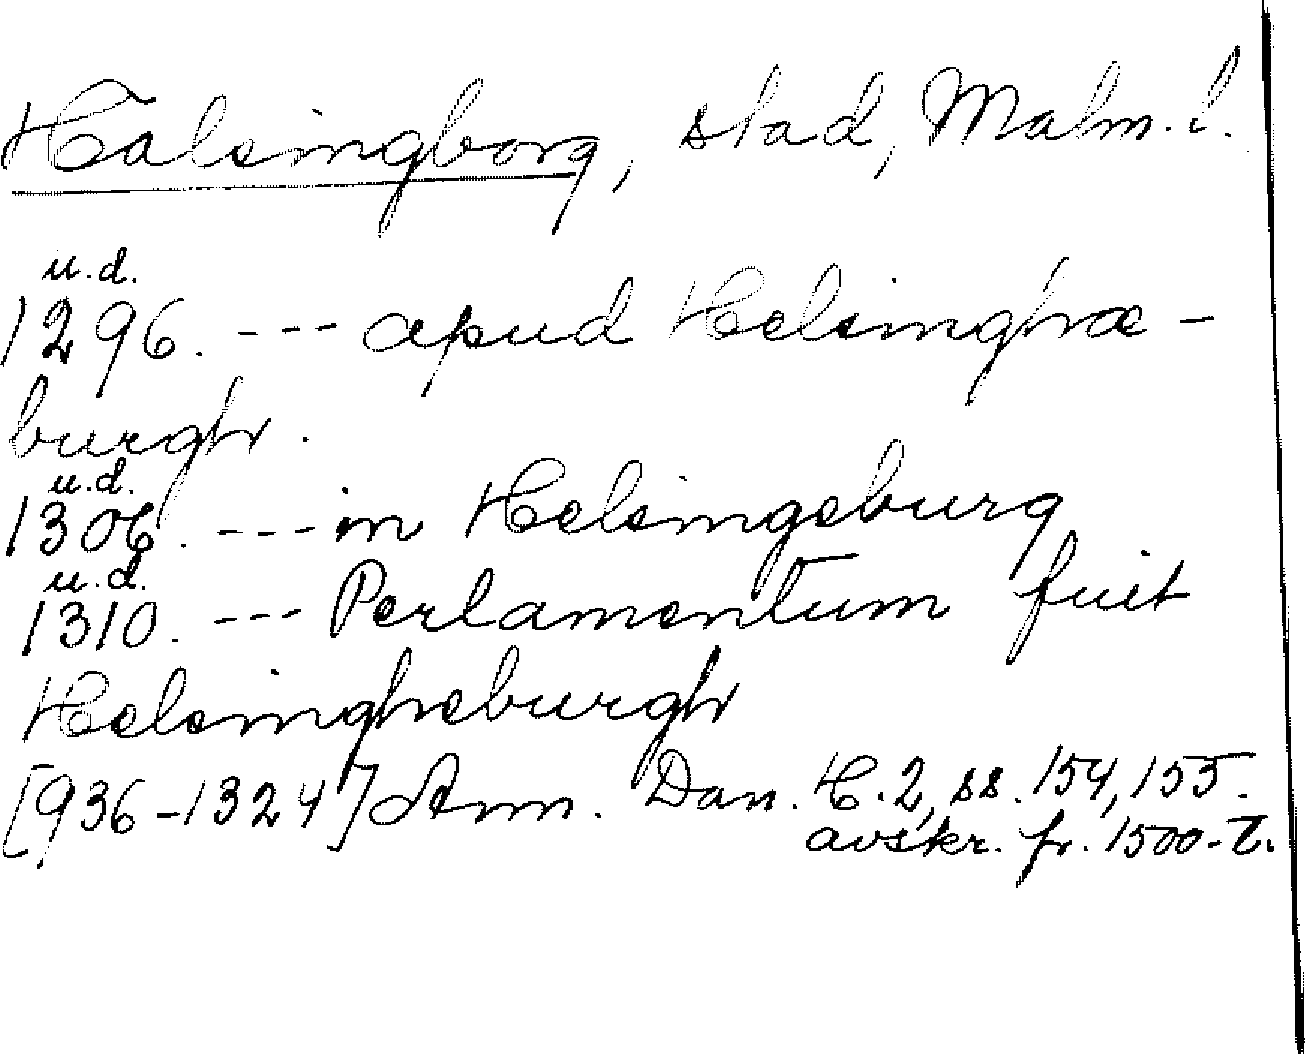 Hälsingborg, stad, Malm. l.
u.d.
1296. --- apud Helsinghæ-
burgh.
u.d.
1306. --- in Helsingeburg
u.d.
1310. --- Perlamentum fuit
Helsingheburgh
[936-1324] Ann. Dan. H.2, ss. 154, 155.
avskr. fr. 1500-t.